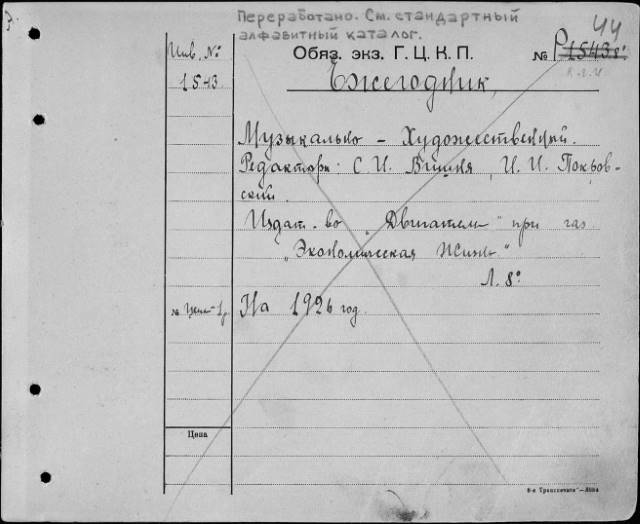 Переработано. См. стандартный
алфавитный каталог.
44
Инв. №
Обяз. экз. Г. Ц. К. П.
№ Р1543
1543
Ежегодник,
Музыкально – Художественный.
Редактора: С. И. Вишня, И. И. Покров-
ский.
Издат-во „Двигатель" при газ
„Экономическая Жизнь"
Л. 8°
На 1926 год.
Цена